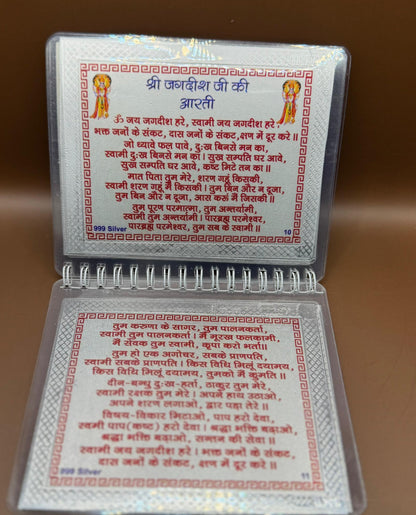 श्री जगदीश जी की
आरती
ॐ जय जगदीश हरे, स्वामी जय जगदीश हरे।
भक्त जनों के संकट, दास जनों के संकट, क्षण में दूर करे॥
जो ध्यावे फल पावे, दुःख बिनसे मन का,
स्वामी दुःख बिनसे मन का। सुख सम्पति घर आवे,
सुख सम्पति घर आवे, कष्ट मिटे तन का॥
मात पिता तुम मेरे, शरण गहूं किसकी,
स्वामी शरण गहूं मैं किसकी। तुम बिन और न दूजा,
तुम बिन और न दूजा, आस करूं मैं जिसकी॥
तुम पूरण परमात्मा, तुम अन्तर्यामी,
स्वामी तुम अन्तर्यामी। पारब्रह्म परमेश्वर,
पारब्रह्म परमेश्वर, तुम सब के स्वामी॥
999 Silver 10
तुम करुणा के सागर, तुम पालनकर्ता,
स्वामी तुम पालनकर्ता। मैं मूरख फलकामी,
मैं सेवक तुम स्वामी, कृपा करो भर्ता॥
तुम हो एक अगोचर, सबके प्राणपति,
स्वामी सबके प्राणपति। किस विधि मिलूं दयामय,
किस विधि मिलूं दयामय, तुमको मैं कुमति॥
दीन-बन्धु दुःख-हर्ता, ठाकुर तुम मेरे,
स्वामी रक्षक तुम मेरे। अपने हाथ उठाओ,
अपने शरण लगाओ, द्वार पड़ा तेरे॥
विषय-विकार मिटाओ, पाप हरो देवा,
स्वामी पाप(कष्ट) हरो देवा। श्रद्धा भक्ति बढ़ाओ,
श्रद्धा भक्ति बढ़ाओ, सन्तन की सेवा॥
स्वामी जय जगदीश हरे। भक्त जनों के संकट,
दास जनों के संकट, क्षण में दूर करे॥
999 Silver 11